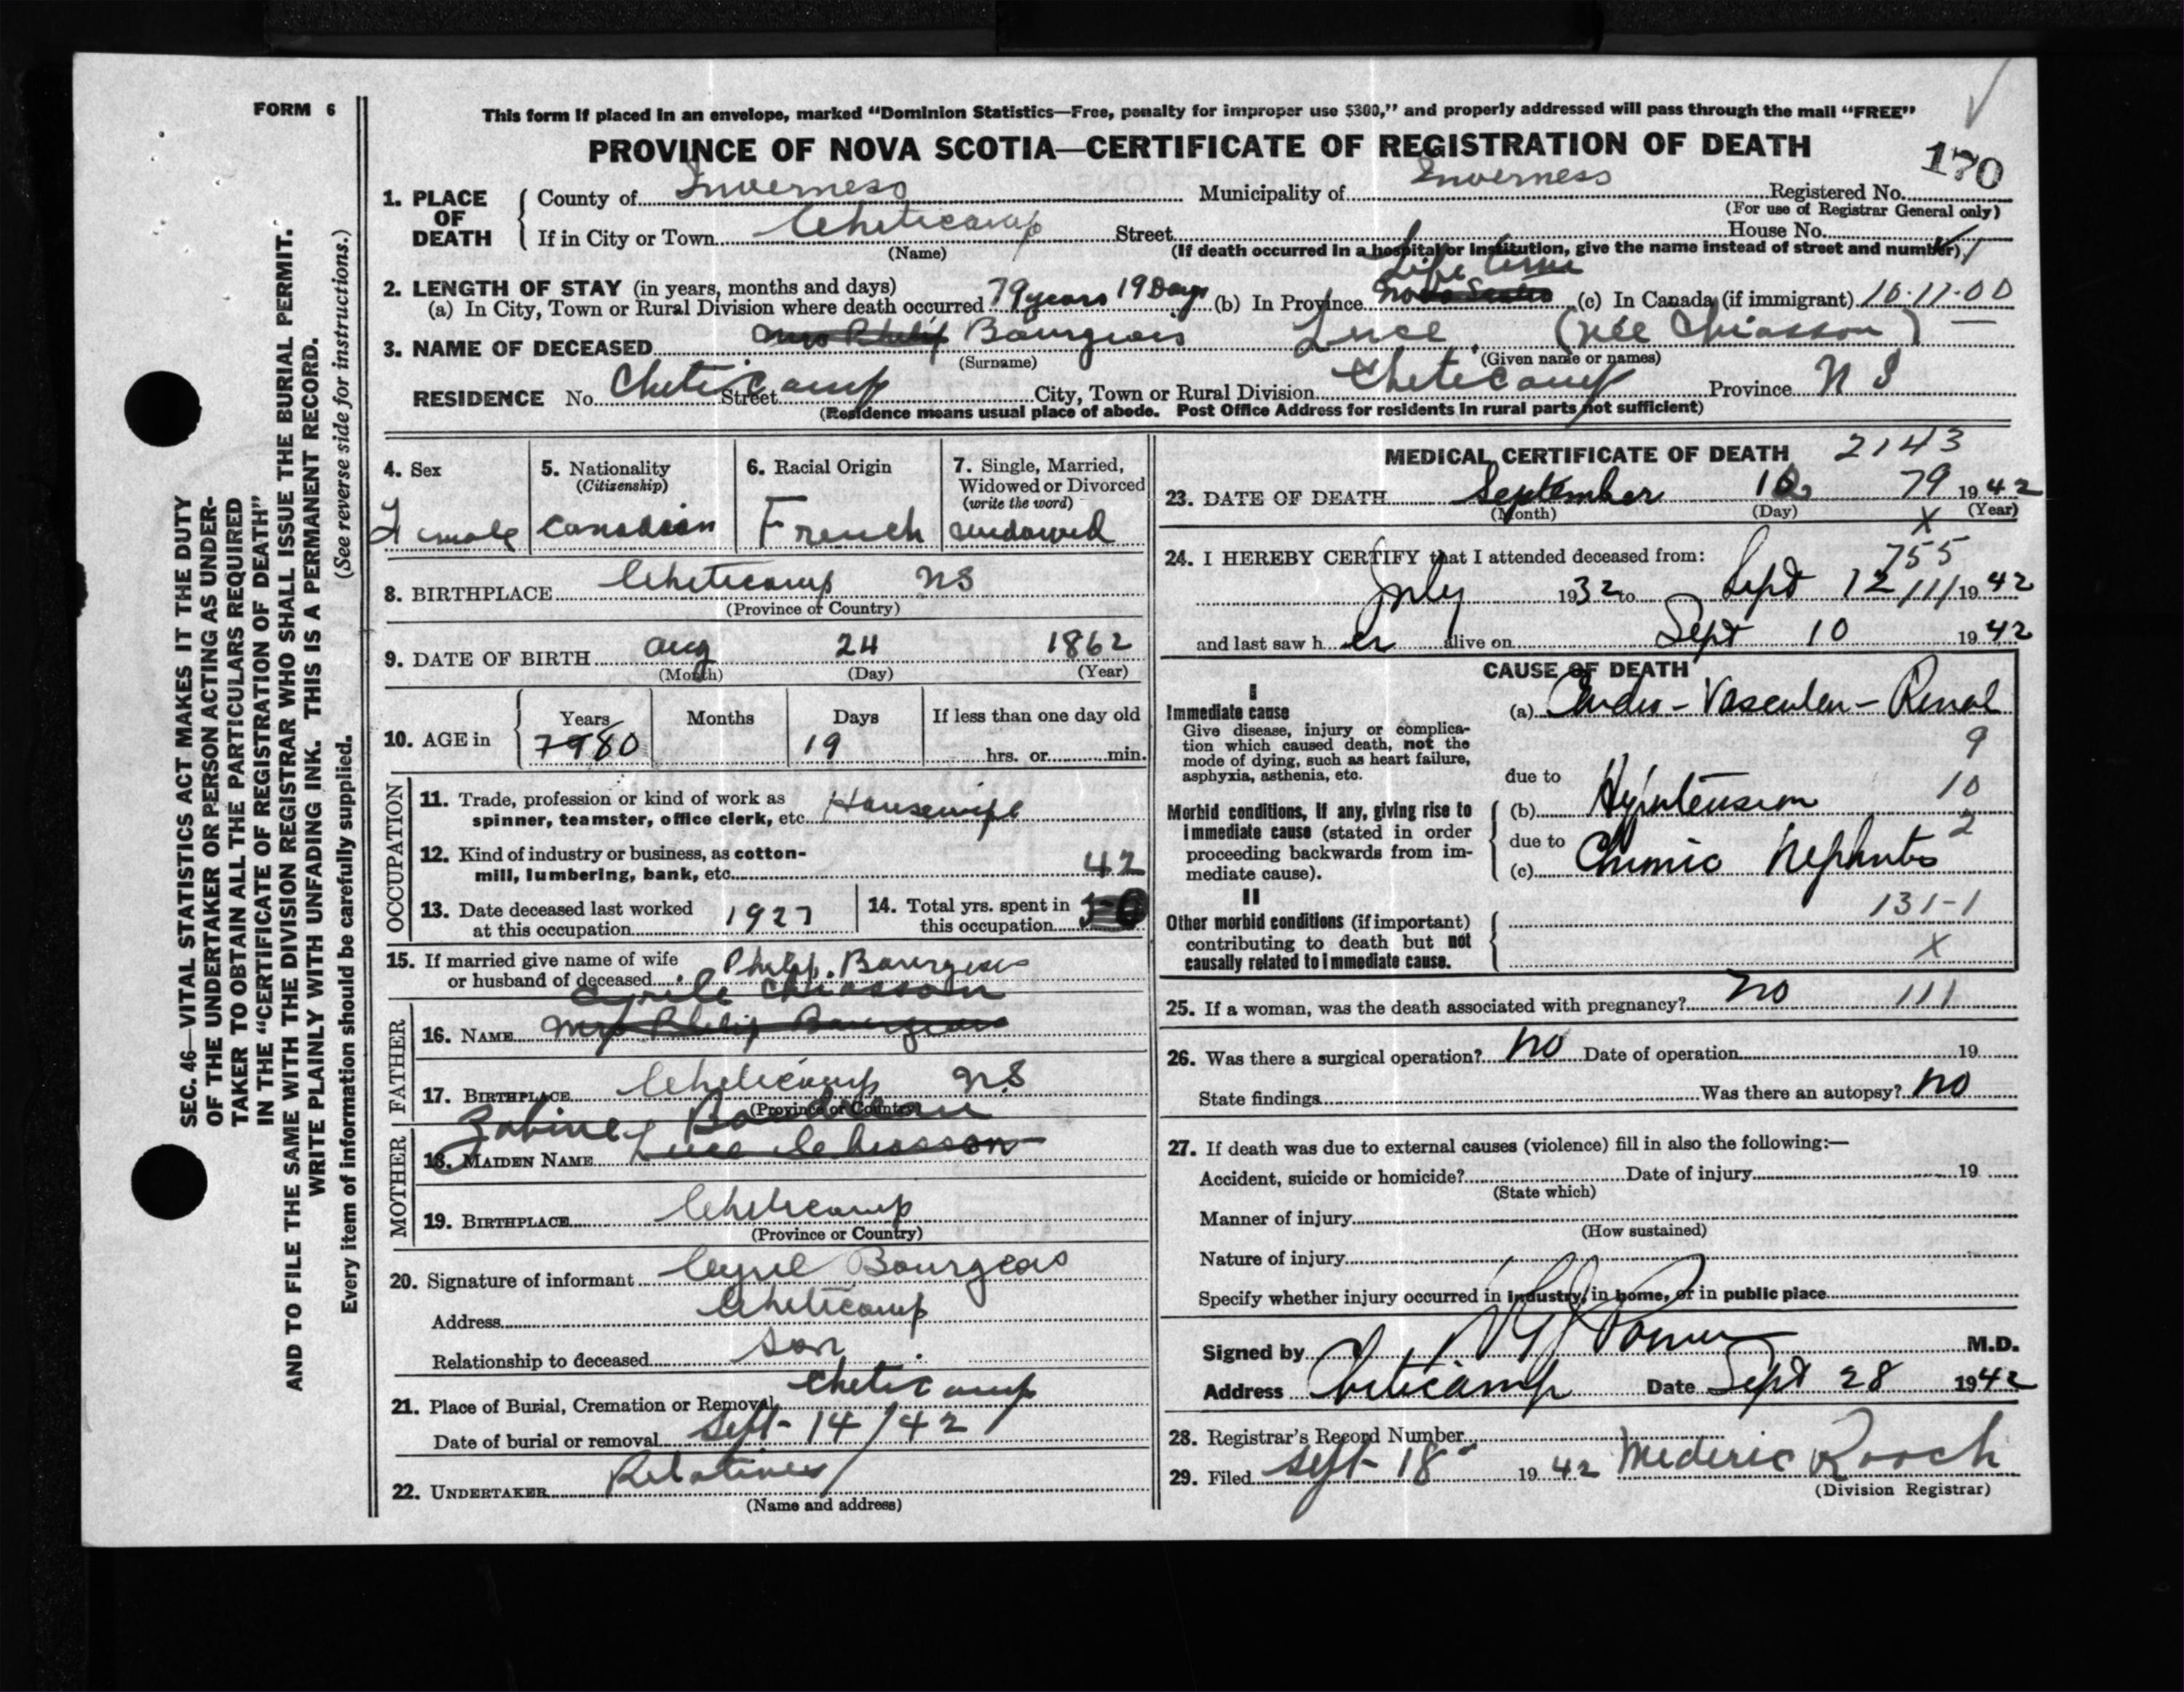 FORM 6
This form if placed in an envelope, marked "Dominion Statistics—Free, penalty for improper use $300," and properly addressed will pass through the mail "FREE"
PROVINCE OF NOVA SCOTIA—CERTIFICATE OF REGISTRATION OF DEATH
170
1. PLACE OF DEATH
County of Inverness Municipality of Inverness Registered No.
(For use of Registrar General only)
If in City or Town Cheticamp Street House No.
(Name) (If death occurred in a hospital or institution, give the name instead of street and number)
2. LENGTH OF STAY (in years, months and days) Life time
(a) In City, Town or Rural Division where death occurred 79 years 19 Days (b) In Province Nova Scotia (c) In Canada (if immigrant) 10-11-00
3. NAME OF DECEASED Mrs Philip Bourgeois Luce (née Chiasson)
(Surname) (Given name or names)
RESIDENCE No. Cheticamp Street City, Town or Rural Division Cheticamp Province N S
(Residence means usual place of abode. Post Office Address for residents in rural parts not sufficient)
4. Sex
Female
5. Nationality
(Citizenship)
Canadian
6. Racial Origin
French
7. Single, Married,
Widowed or Divorced
(write the word)
widowed
8. BIRTHPLACE Cheticamp NS
(Province or Country)
9. DATE OF BIRTH Aug 24 1862
(Month) (Day) (Year)
10. AGE in
Years Months Days If less than one day old
79 80 19 hrs. or min.
OCCUPATION
11. Trade, profession or kind of work as
spinner, teamster, office clerk, etc. Housewife
12. Kind of industry or business, as cotton-
mill, lumbering, bank, etc.
42
13. Date deceased last worked
at this occupation 1927
14. Total yrs. spent in
this occupation 50
15. If married give name of wife
or husband of deceased Philip. Bourgeois
FATHER
Cyrile Chiasson
16. NAME Mrs Philip Bourgeois
17. BIRTHPLACE Cheticamp N.S
(Province or Country)
MOTHER
Zabine Boudreau
18. MAIDEN NAME Luce Schiasson
19. BIRTHPLACE Cheticamp
(Province or Country)
20. Signature of informant Cyril Bourgeois
Address Cheticamp
Relationship to deceased son
21. Place of Burial, Cremation or Removal Cheticamp
Date of burial or removal Sept-14/42
22. UNDERTAKER Relatives
(Name and address)
MEDICAL CERTIFICATE OF DEATH 2143
23. DATE OF DEATH September 79 1942
(Month) (Day) X (Year)
24. I HEREBY CERTIFY that I attended deceased from: 755
July 1932 to Sept 12/11/1942
and last saw her alive on Sept 10 1942
CAUSE OF DEATH
I
Immediate cause
Give disease, injury or complica-
tion which caused death, not the
mode of dying, such as heart failure,
asphyxia, asthenia, etc.
(a) Cardio-Vascular-Renal
9
due to
10
Morbid conditions, if any, giving rise to
immediate cause (stated in order
proceeding backwards from im-
mediate cause).
(b) Hypertension
2
due to
(c) Chronic Nephritis
II
Other morbid conditions (if important)
contributing to death but not
causally related to immediate cause.
131-1
X
25. If a woman, was the death associated with pregnancy? no 111
26. Was there a surgical operation? no Date of operation 19
State findings Was there an autopsy? no
27. If death was due to external causes (violence) fill in also the following:—
Accident, suicide or homicide? Date of injury 19
(State which)
Manner of injury
(How sustained)
Nature of injury
Specify whether injury occurred in industry, in home, or in public place
Signed by M.D.
Address Cheticamp Date Sept 28 1942
28. Registrar's Record Number
29. Filed Sept 18 1942 Mederic Roach
(Division Registrar)
SEC. 46—VITAL STATISTICS ACT MAKES IT THE DUTY
OF THE UNDERTAKER OR PERSON ACTING AS UNDER-
TAKER TO OBTAIN ALL THE PARTICULARS REQUIRED
IN THE "CERTIFICATE OF REGISTRATION OF DEATH"
AND TO FILE THE SAME WITH THE DIVISION REGISTRAR WHO SHALL ISSUE THE BURIAL PERMIT.
WRITE PLAINLY WITH UNFADING INK. THIS IS A PERMANENT RECORD.
Every item of information should be carefully supplied. (See reverse side for instructions.)